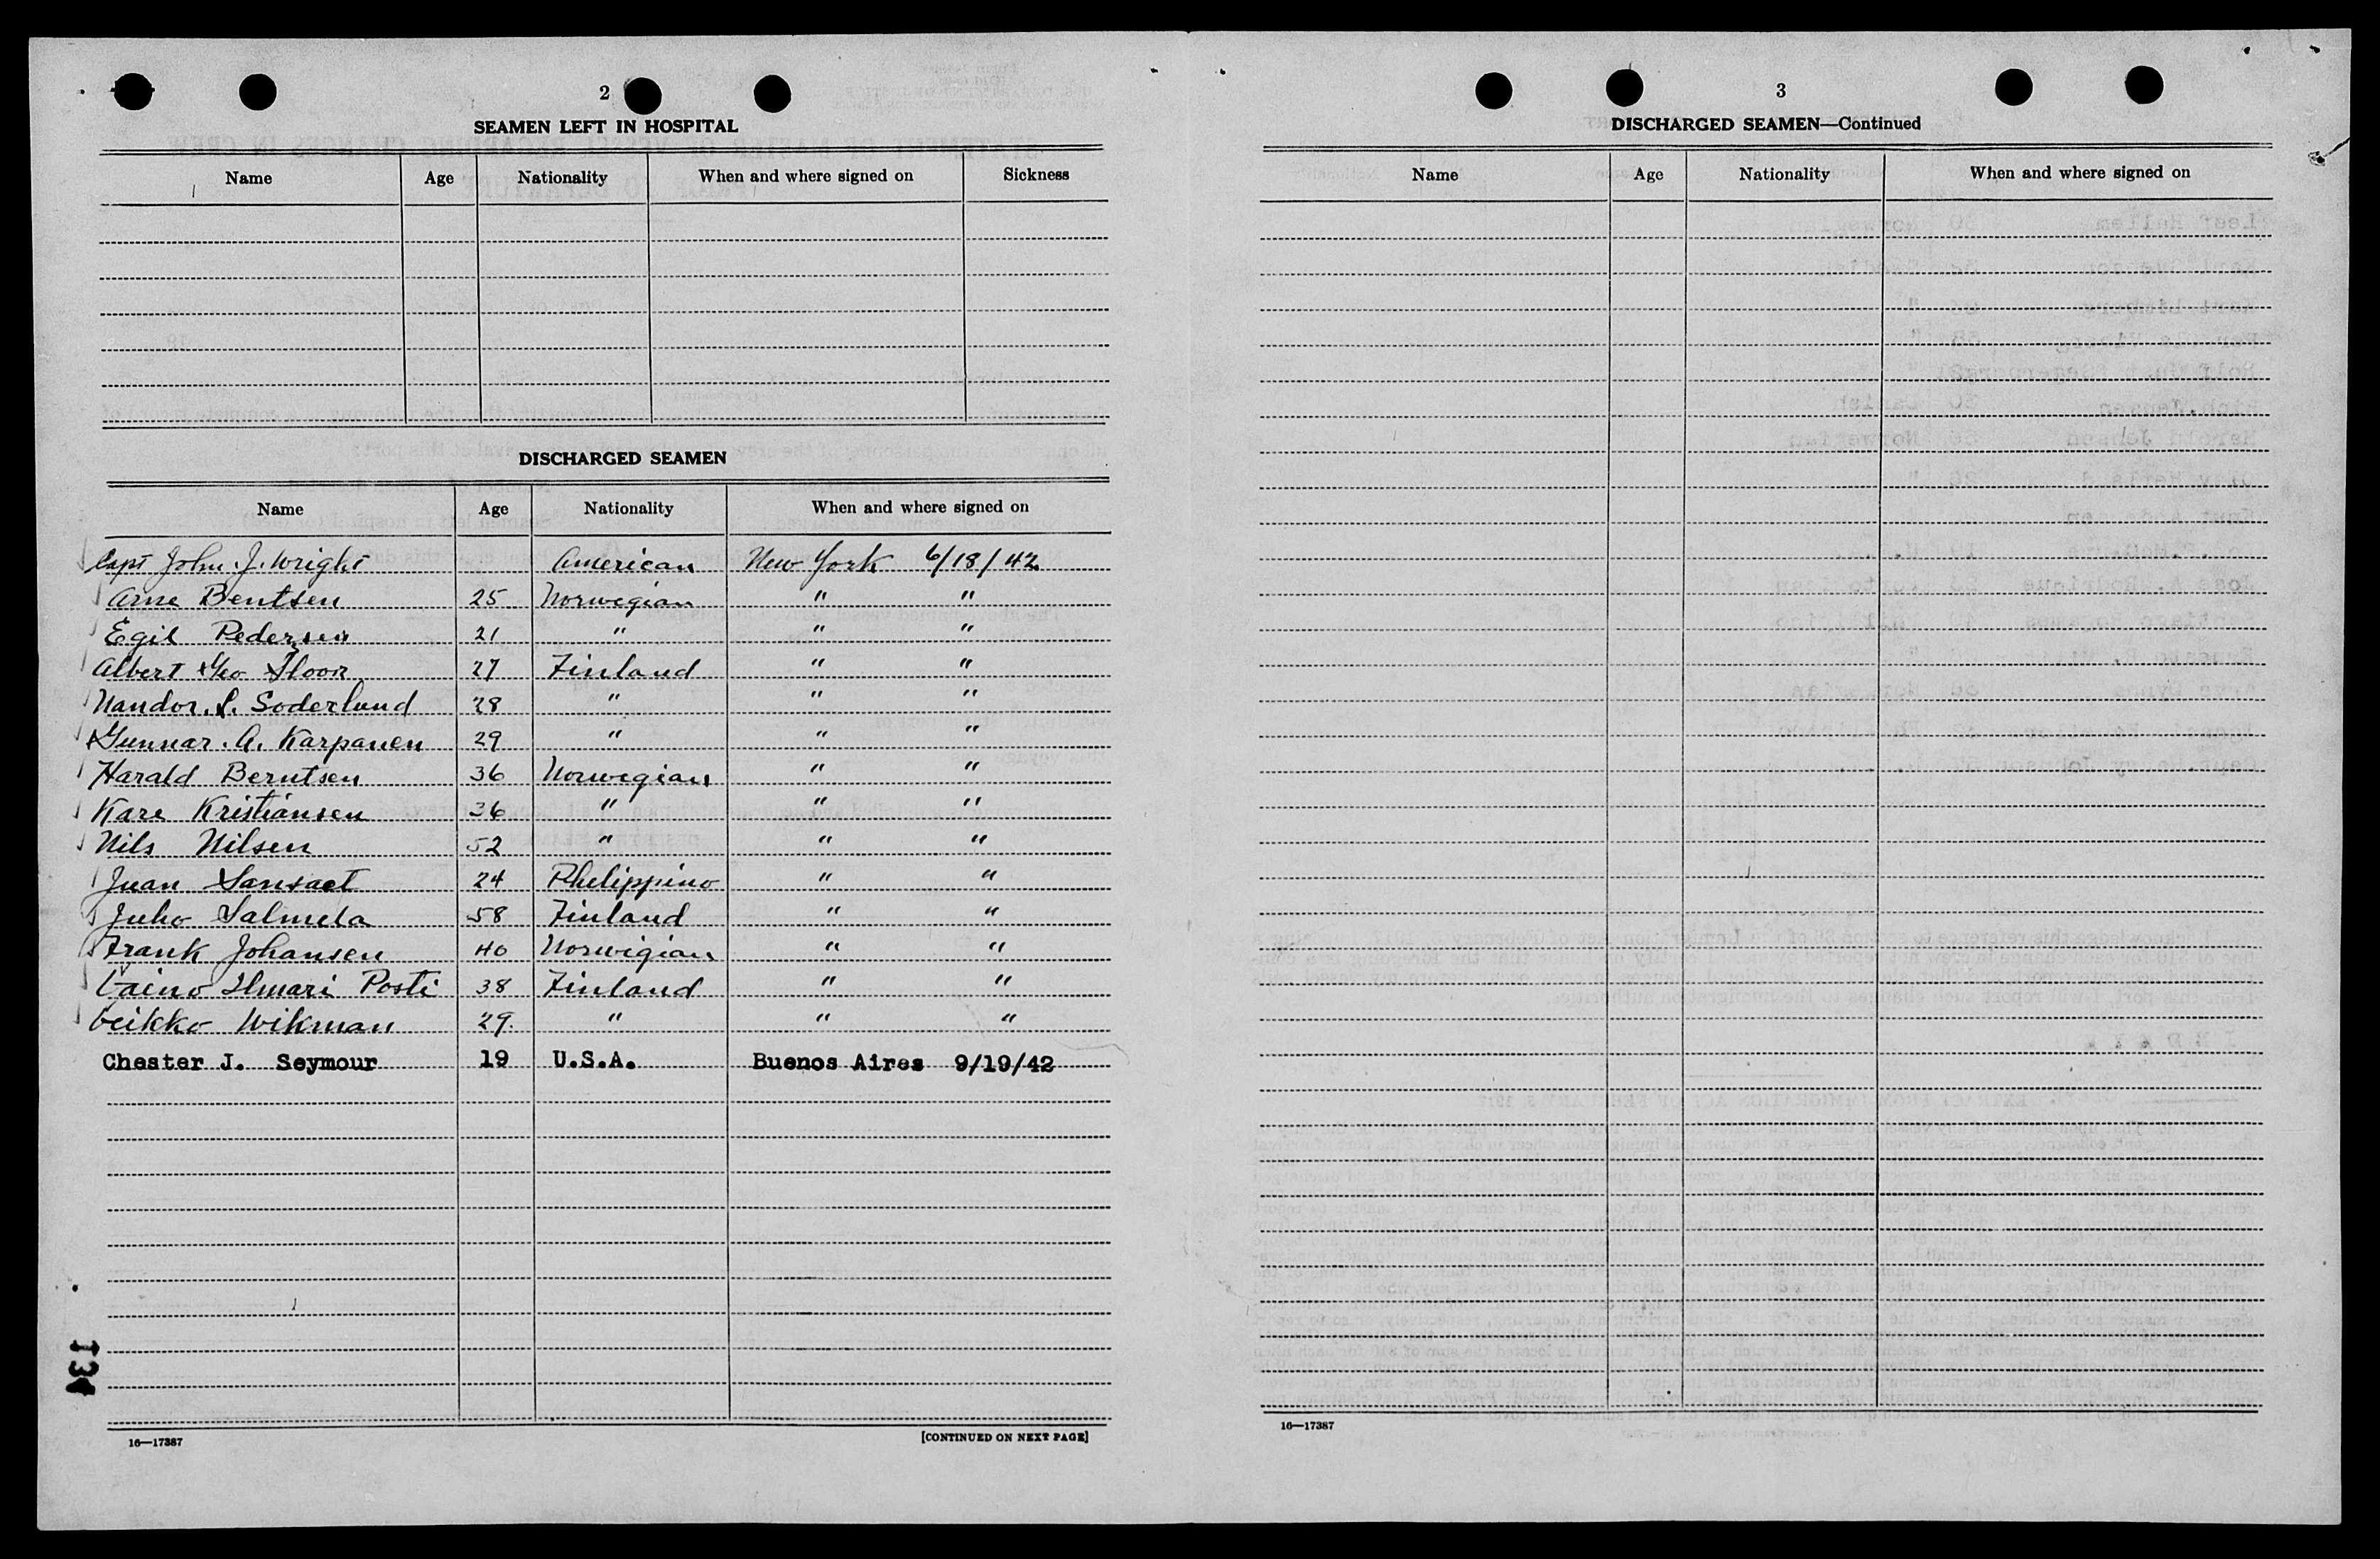 2
SEAMEN LEFT IN HOSPITAL
Name Age Nationality When and where signed on Sickness
DISCHARGED SEAMEN
Name Age Nationality When and where signed on
Capt John. J. Wright American New York 6/18/42
Arne Bentsen 25 Norwegian " "
Egil Pedersen 21 " " "
Albert Geo Sloor 27 Finland " "
Nandor. S. Soderlund 28 " " "
Gunnar. A. Karpanen 29 " " "
Harald Berntsen 36 Norwegian " "
Kare Kristiansen 36 " " "
Nils Nilsen 52 " " "
Juan Sansaet 24 Phelippino " "
Juho Salmela 58 Finland " "
Frank Johansen 40 Norwigian " "
Vaino Ilmari Posti 38 Finland " "
Veikko Wikman 29. " " "
Chester J. Seymour 19 U.S.A. Buenos Aires 9/19/42
134
16—17387 [CONTINUED ON NEXT PAGE]
3
DISCHARGED SEAMEN—Continued
Name Age Nationality When and where signed on
16—17387